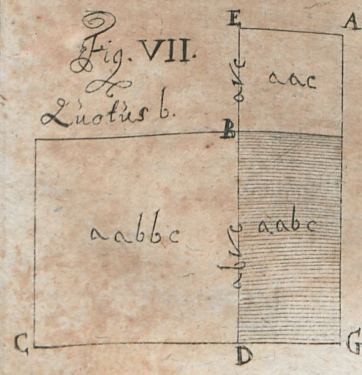 Fig. VII.
Quotus b.
E
A
a√c
aac
B
aabbc
ab√c
aabc
C
D
G